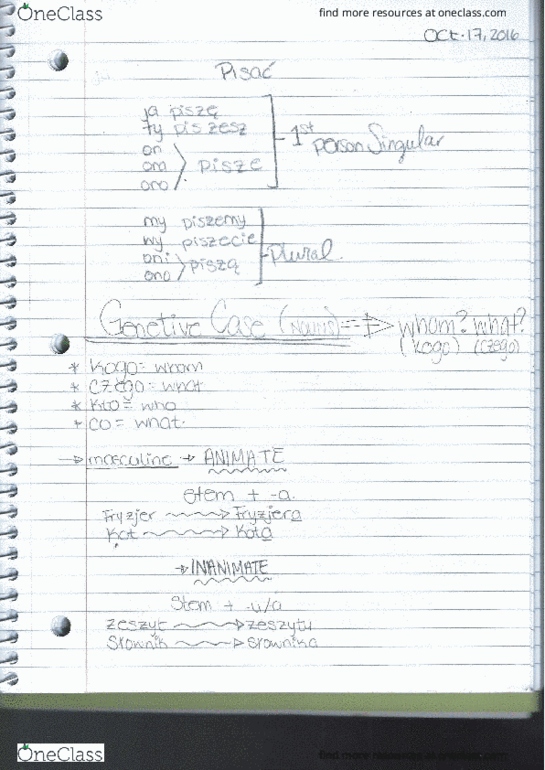 OneClass
find more resources at oneclass.com
Oct. 17, 2016
Pisać
ja piszę
ty piszesz
on
ona pisze
ono
1st person Singular
my piszemy
wy piszecie
oni piszą
ono
Plural
Genetive Case (Nouns) whom? what?
(kogo) (czego)
* kogo = whom
* czego = what
* kto = who
* co = what.
→ masculine → ANIMATE
stem + -a.
Fryzjer → Fryzjera
Kot → Kota
→ INANIMATE
Stem + -u/a
zeszyt → zeszytu
Słownik → słownika
OneClass
find more resources at oneclass.com